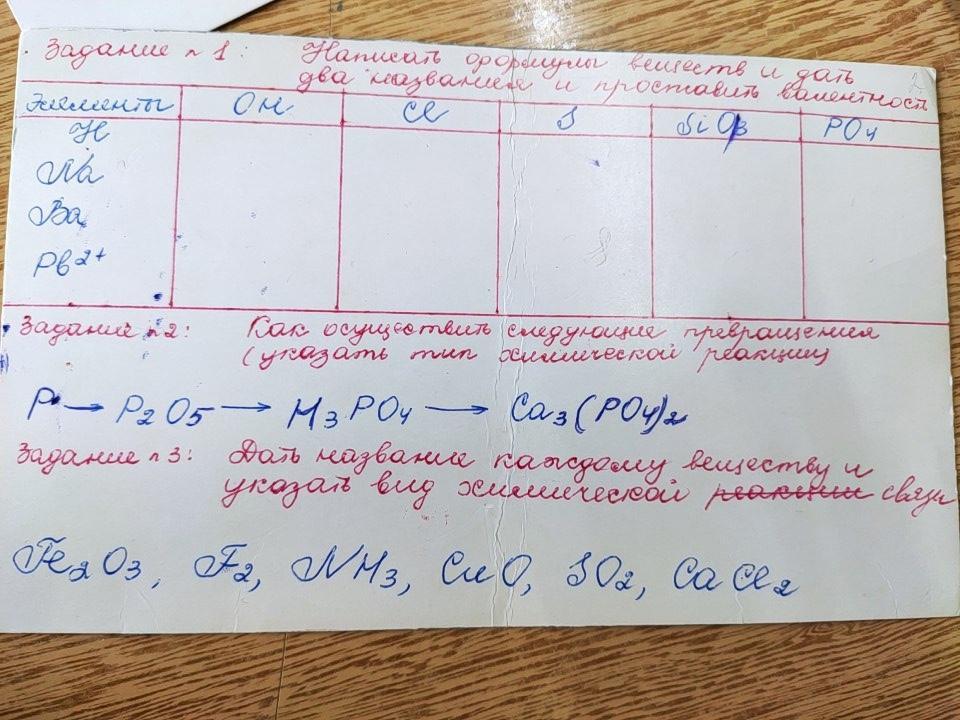 Задание №1: Написать формулы веществ и дать
два названия и проставить валентность
Элементы OH Cl S SiO3 PO4
H
Na
Ba
Pb2+
Задание №2: Как осуществить следующие превращения
(указать тип химической реакции)
P → P2O5 → H3PO4 → Ca3(PO4)2
Задание №3: Дать название каждому веществу и
указать вид химической реакции связи
Fe2O3, F2, NH3, CuO, SO2, CaCl2